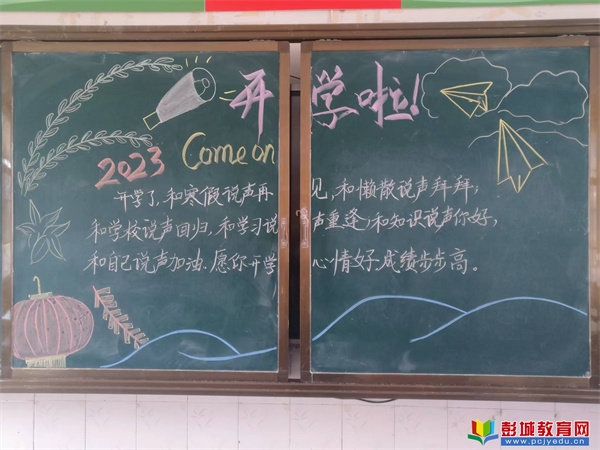 开学啦!
2023 Come on
开学了,和寒假说声再见,和懒散说声拜拜;
和学校说声回归,和学习说声重逢;和知识说声你好,
和自己说声加油、愿你开学心情好,成绩步步高。
彭城教育网
www.pcjyedu.cn